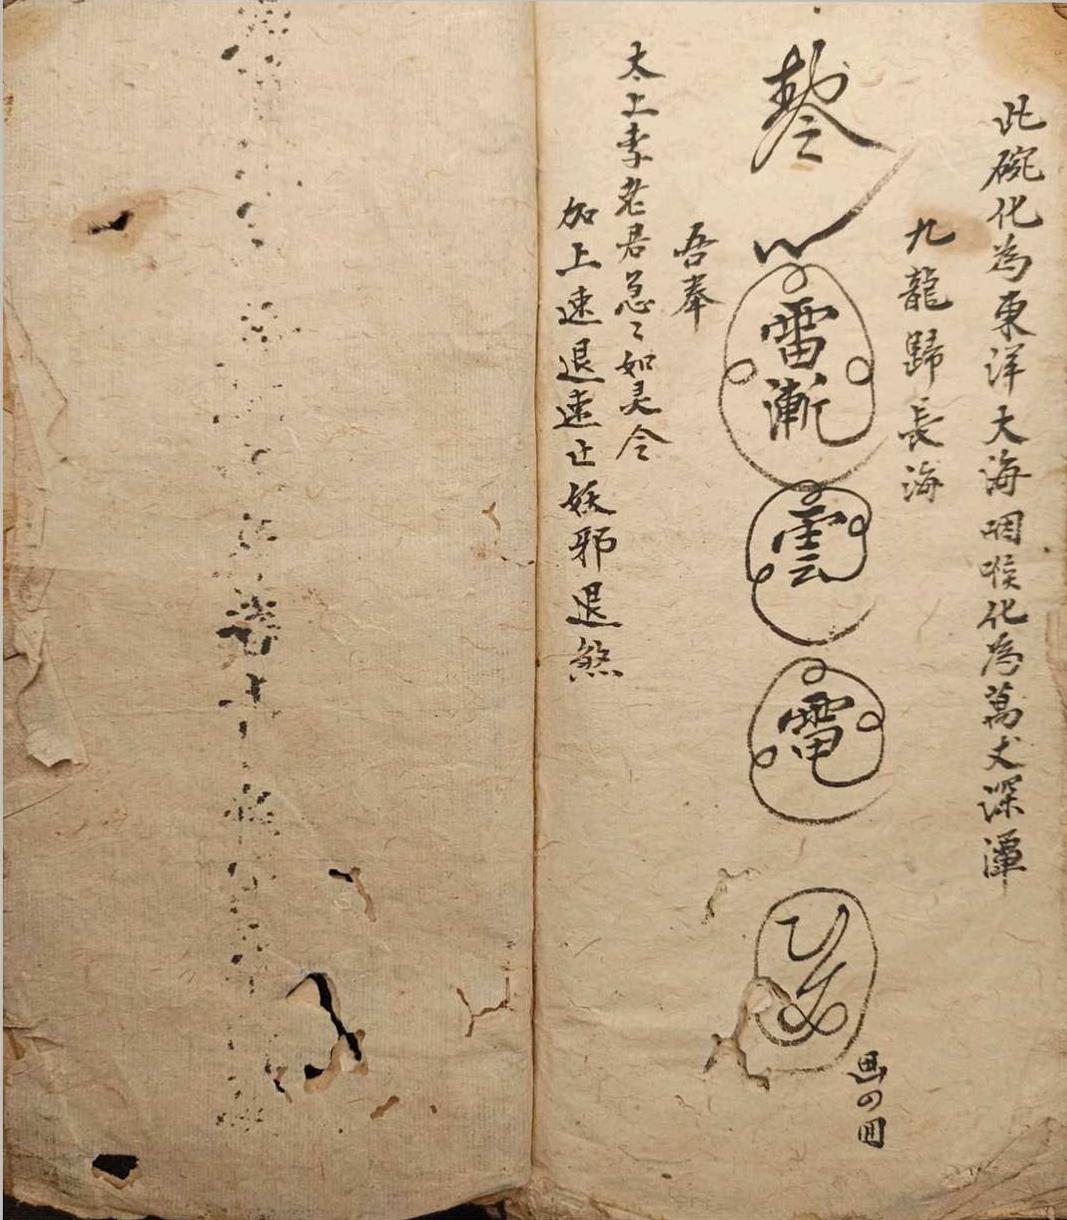 此碗化為東洋大海咽喉化為萬丈深潭
九龍歸長海
雷漸
雲
電
畫四回
吾奉
太上李老君急々如灵令
加上速退速止妖邪退煞